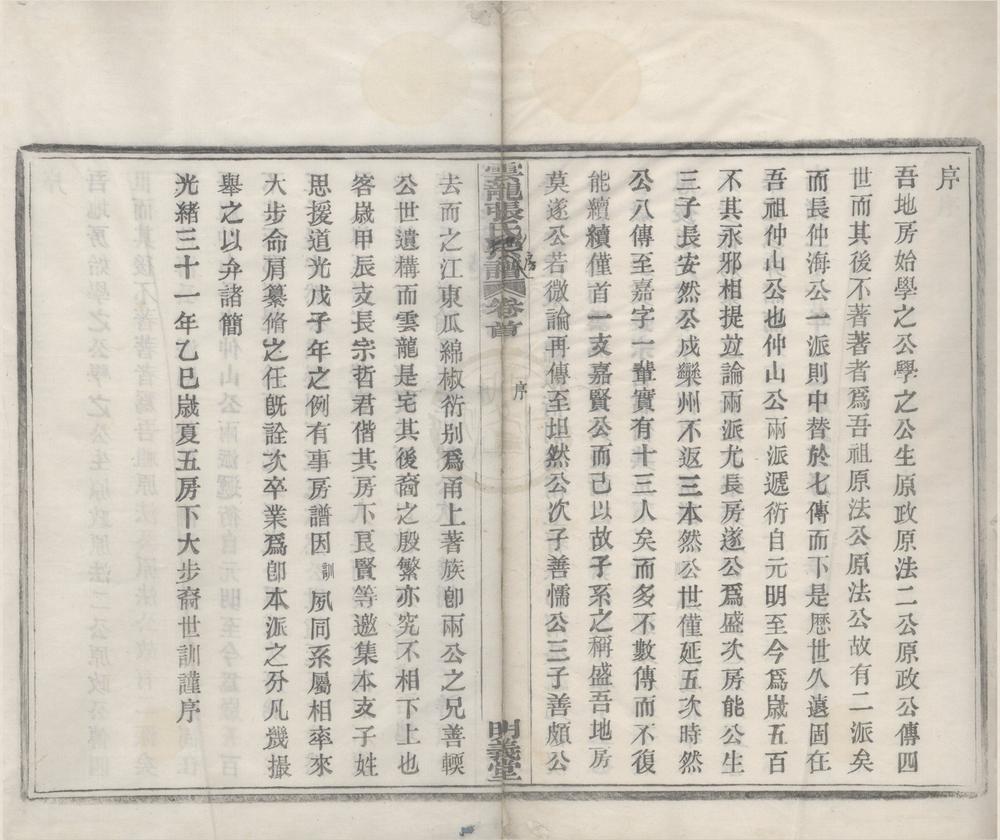 序
吾地房始學之公學之公生原政原法二公原政公傳四
世而其後不著著者爲吾祖原法公原法公故有二派矣
而長仲海公一派則中替於七傳而下是厯世久遠固在
吾祖仲山公也仲山公兩派遞衍自元明至今爲嵗五百
不其永邪相提並論兩派尤長房遂公爲盛次房能公生
三子長安然公戍欒州不返三本然公世僅延五次時然
公八傳至嘉字一輩實有十三人矣而多不數傳而不復
能續續僅首一支嘉賢公而已以故子系之稱盛吾地房
莫遂公若微論再傳至坦然公次子善懦公三子善頗公
雲龍張氏地房譜 卷首
序
明義堂
去而之江東瓜綿椒衍别爲甬上著族卽兩公之兄善輭
公世遺構而雲龍是宅其後裔之殷繁亦究不相下上也
客嵗甲辰支長宗哲君偕其房下艮賢等邀集本支子姓
思援道光戊子年之例有事房譜因訓夙同系屬相率來
大步命肩纂脩之任旣詮次卒業爲卽本派之分凡幾撮
舉之以弁諸簡
光緒三十一年乙巳嵗夏五房下大步裔世訓謹序